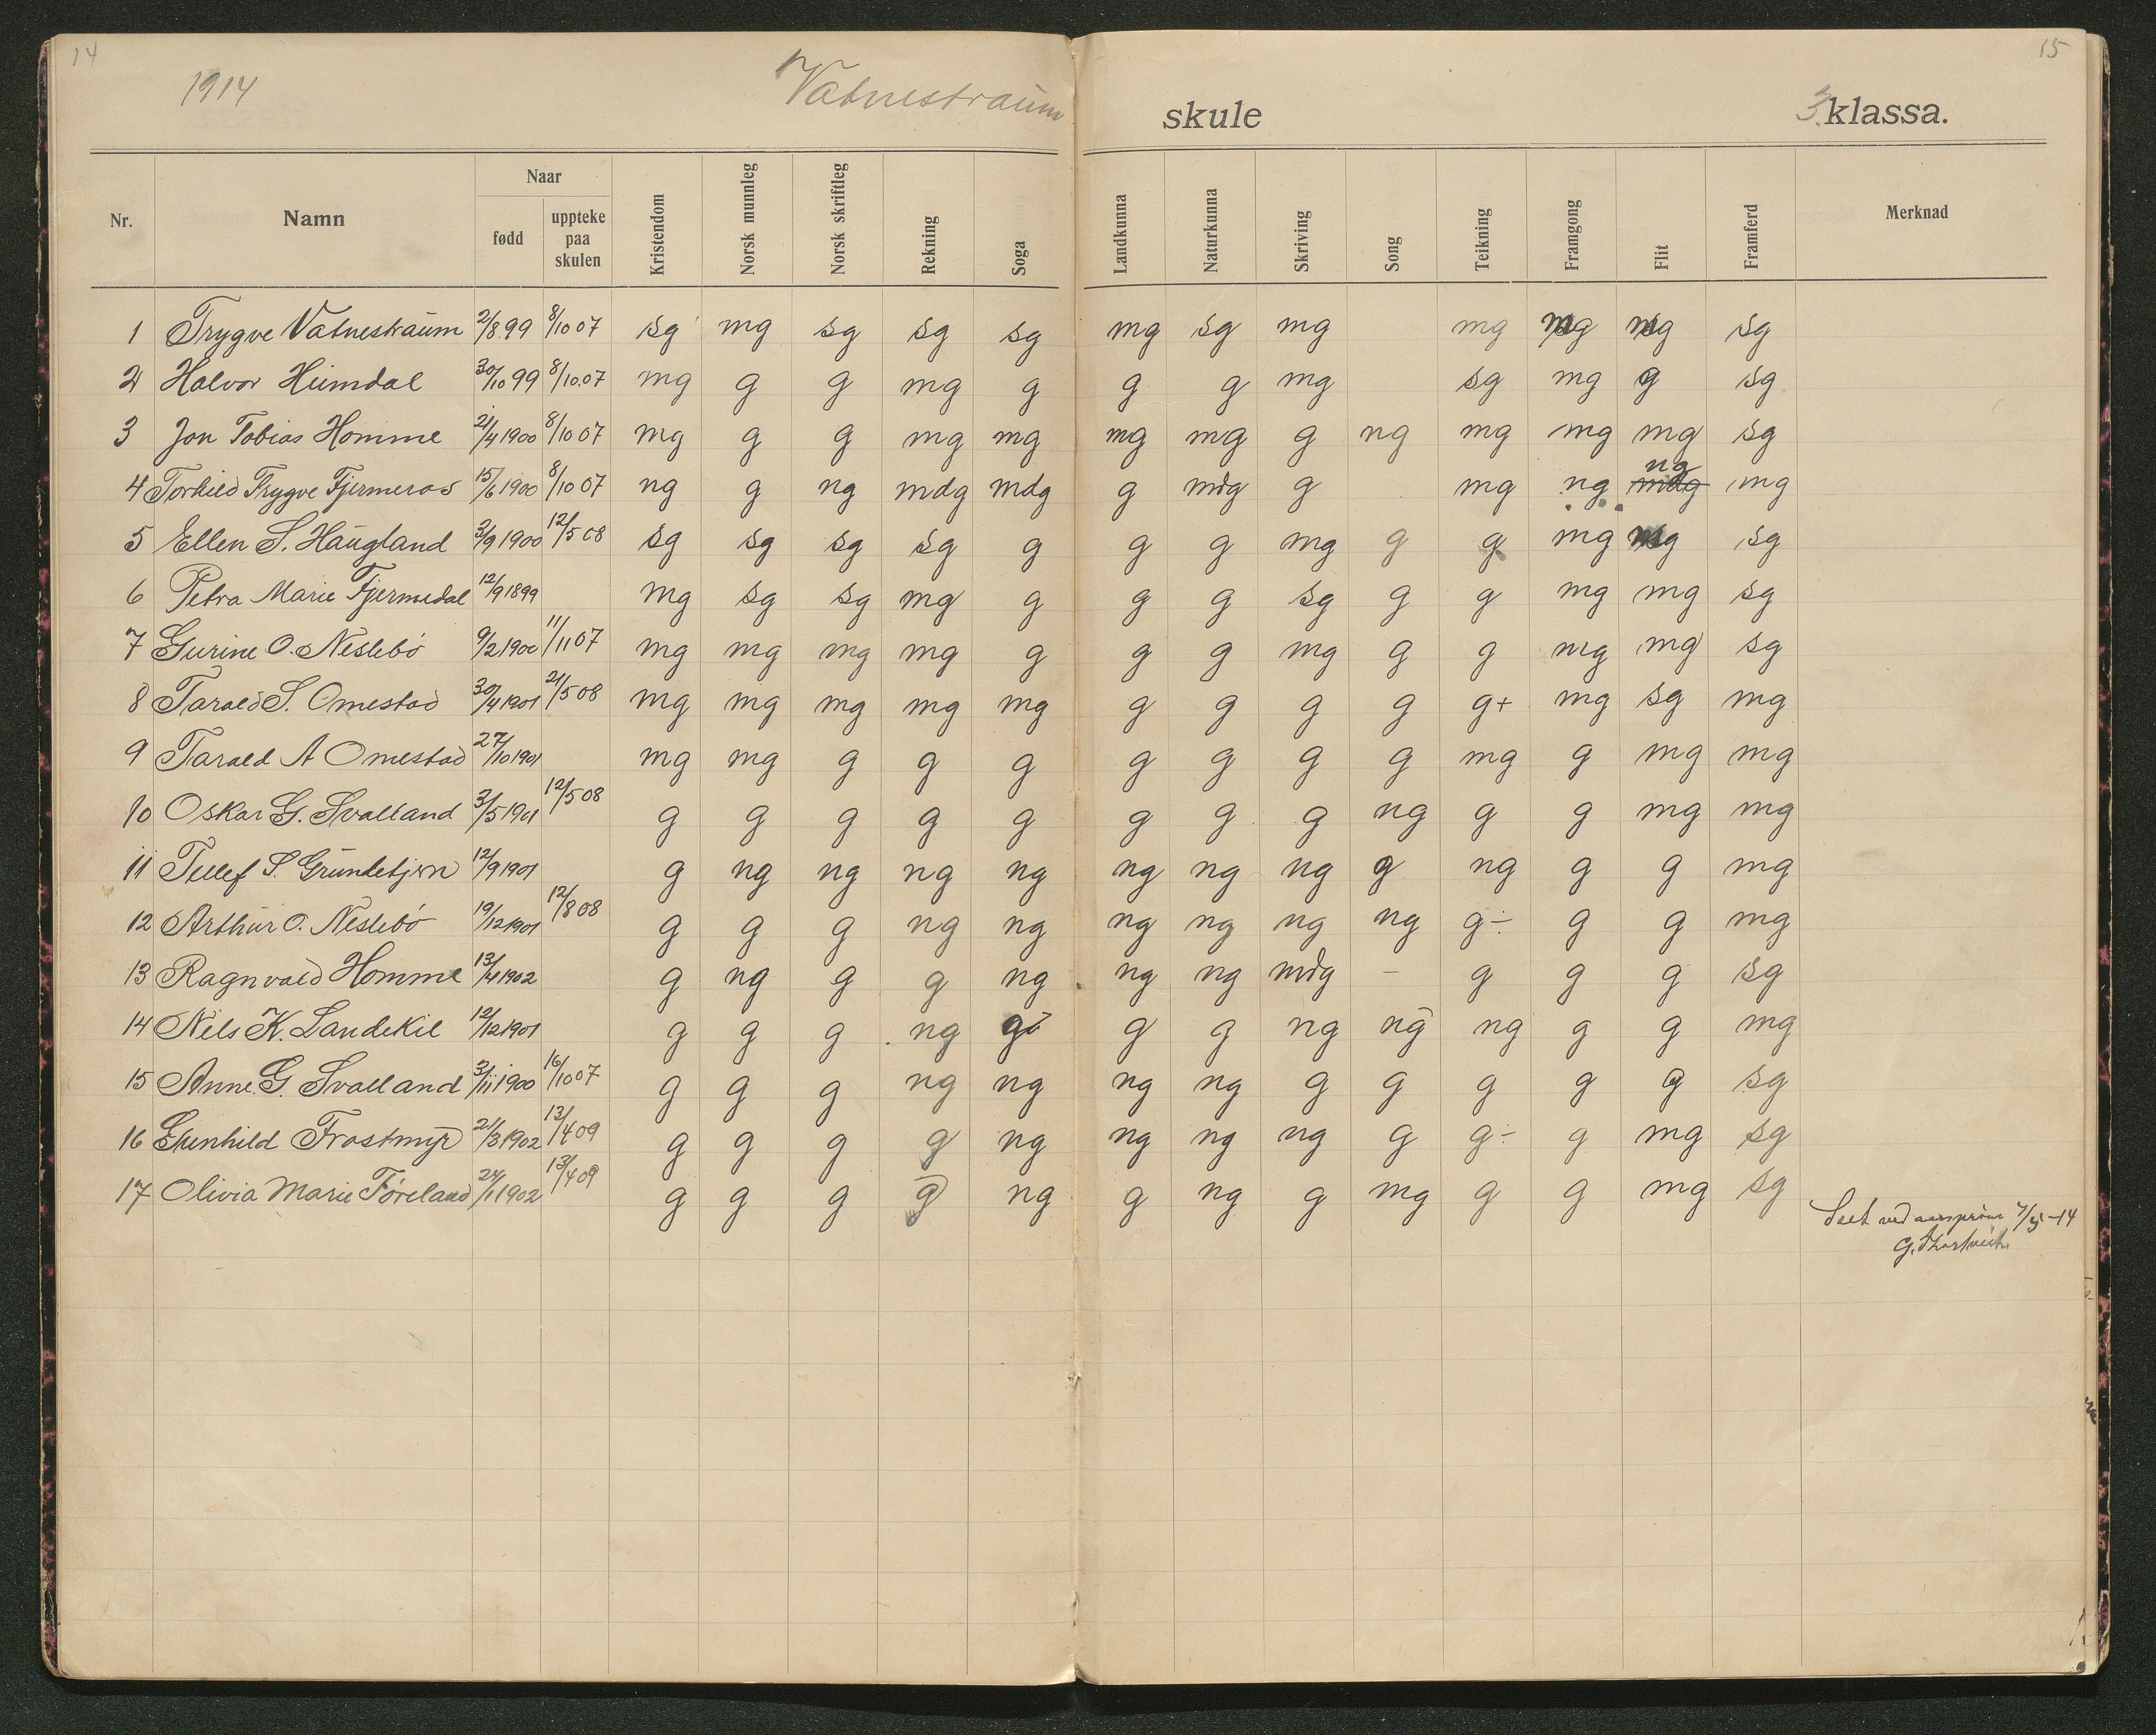 14
15
1914 Vatnestraum skule 3. klassa.
Nr. Namn Naar fødd uppteke paa skulen Kristendom Norsk munnleg Norsk skriftleg Rekning Soga Landkunna Naturkunna Skriving Song Teikning Framgong Flit Framferd Merknad
1 Trygve Vatnestraum 2/8 99 8/10 07 sg mg sg sg sg mg sg mg mg sg
2 Halvor Heimdal 30/10 99 8/10.07 mg g g mg g g g mg sg mg g sg
3 Jon Tobias Homme 21/4 1900 8/10 07 mg g g mg mg mg mg g ng mg mg mg sg
4 Torkild Trygve Fjermeros 15/6 1900 8/10 07 ng g ng mdg mdg g mdg g mg ng mdg ng mg
5 Ellen S. Haugland 3/9 1900 12/5 08 sg sg sg sg g g g mg g g mg sg
6 Petra Marie Fjermedal 12/9 1899 mg sg sg mg g g g sg g g mg mg sg
7 Gurine O. Neslebö 9/2 1900 11/11 07 mg mg mg mg g g g mg g g mg mg sg
8 Tarald S. Omestad 30/4 1901 21/5 08 mg mg mg mg mg g g g g g+ mg sg mg
9 Tarald A Omestad 27/10 1901 mg mg g g g g g g g mg g mg mg
10 Oskar G. Svalland 3/5 1901 12/5 08 g g g g g g g g ng g g mg mg
11 Tellef S. Grundetjern 12/9 1901 g ng ng ng ng ng ng ng g ng g g mg
12 Arthur O. Neslebö 19/12 1901 12/8 08 g g g ng ng ng ng ng ng g÷ g g mg
13 Ragnvald Homme 13/4 1902 g ng g g ng ng ng mdg – g g g sg
14 Nils K. Landekil 12/12 1901 g g g ng g g g ng ng ng g g mg
15 Anne G. Svalland 3/11 1900 16/10 07 g g g ng ng ng ng g g g g g sg
16 Gunhild Frostmyr 21/3 1902 13/4 09 g g g g ng ng ng ng g g÷ g mg sg
17 Olivia Marie Föreland 24/1 1902 13/4 09 g g g g ng g ng g mg g g mg sg
Seet ved aarsprøve -14
G.